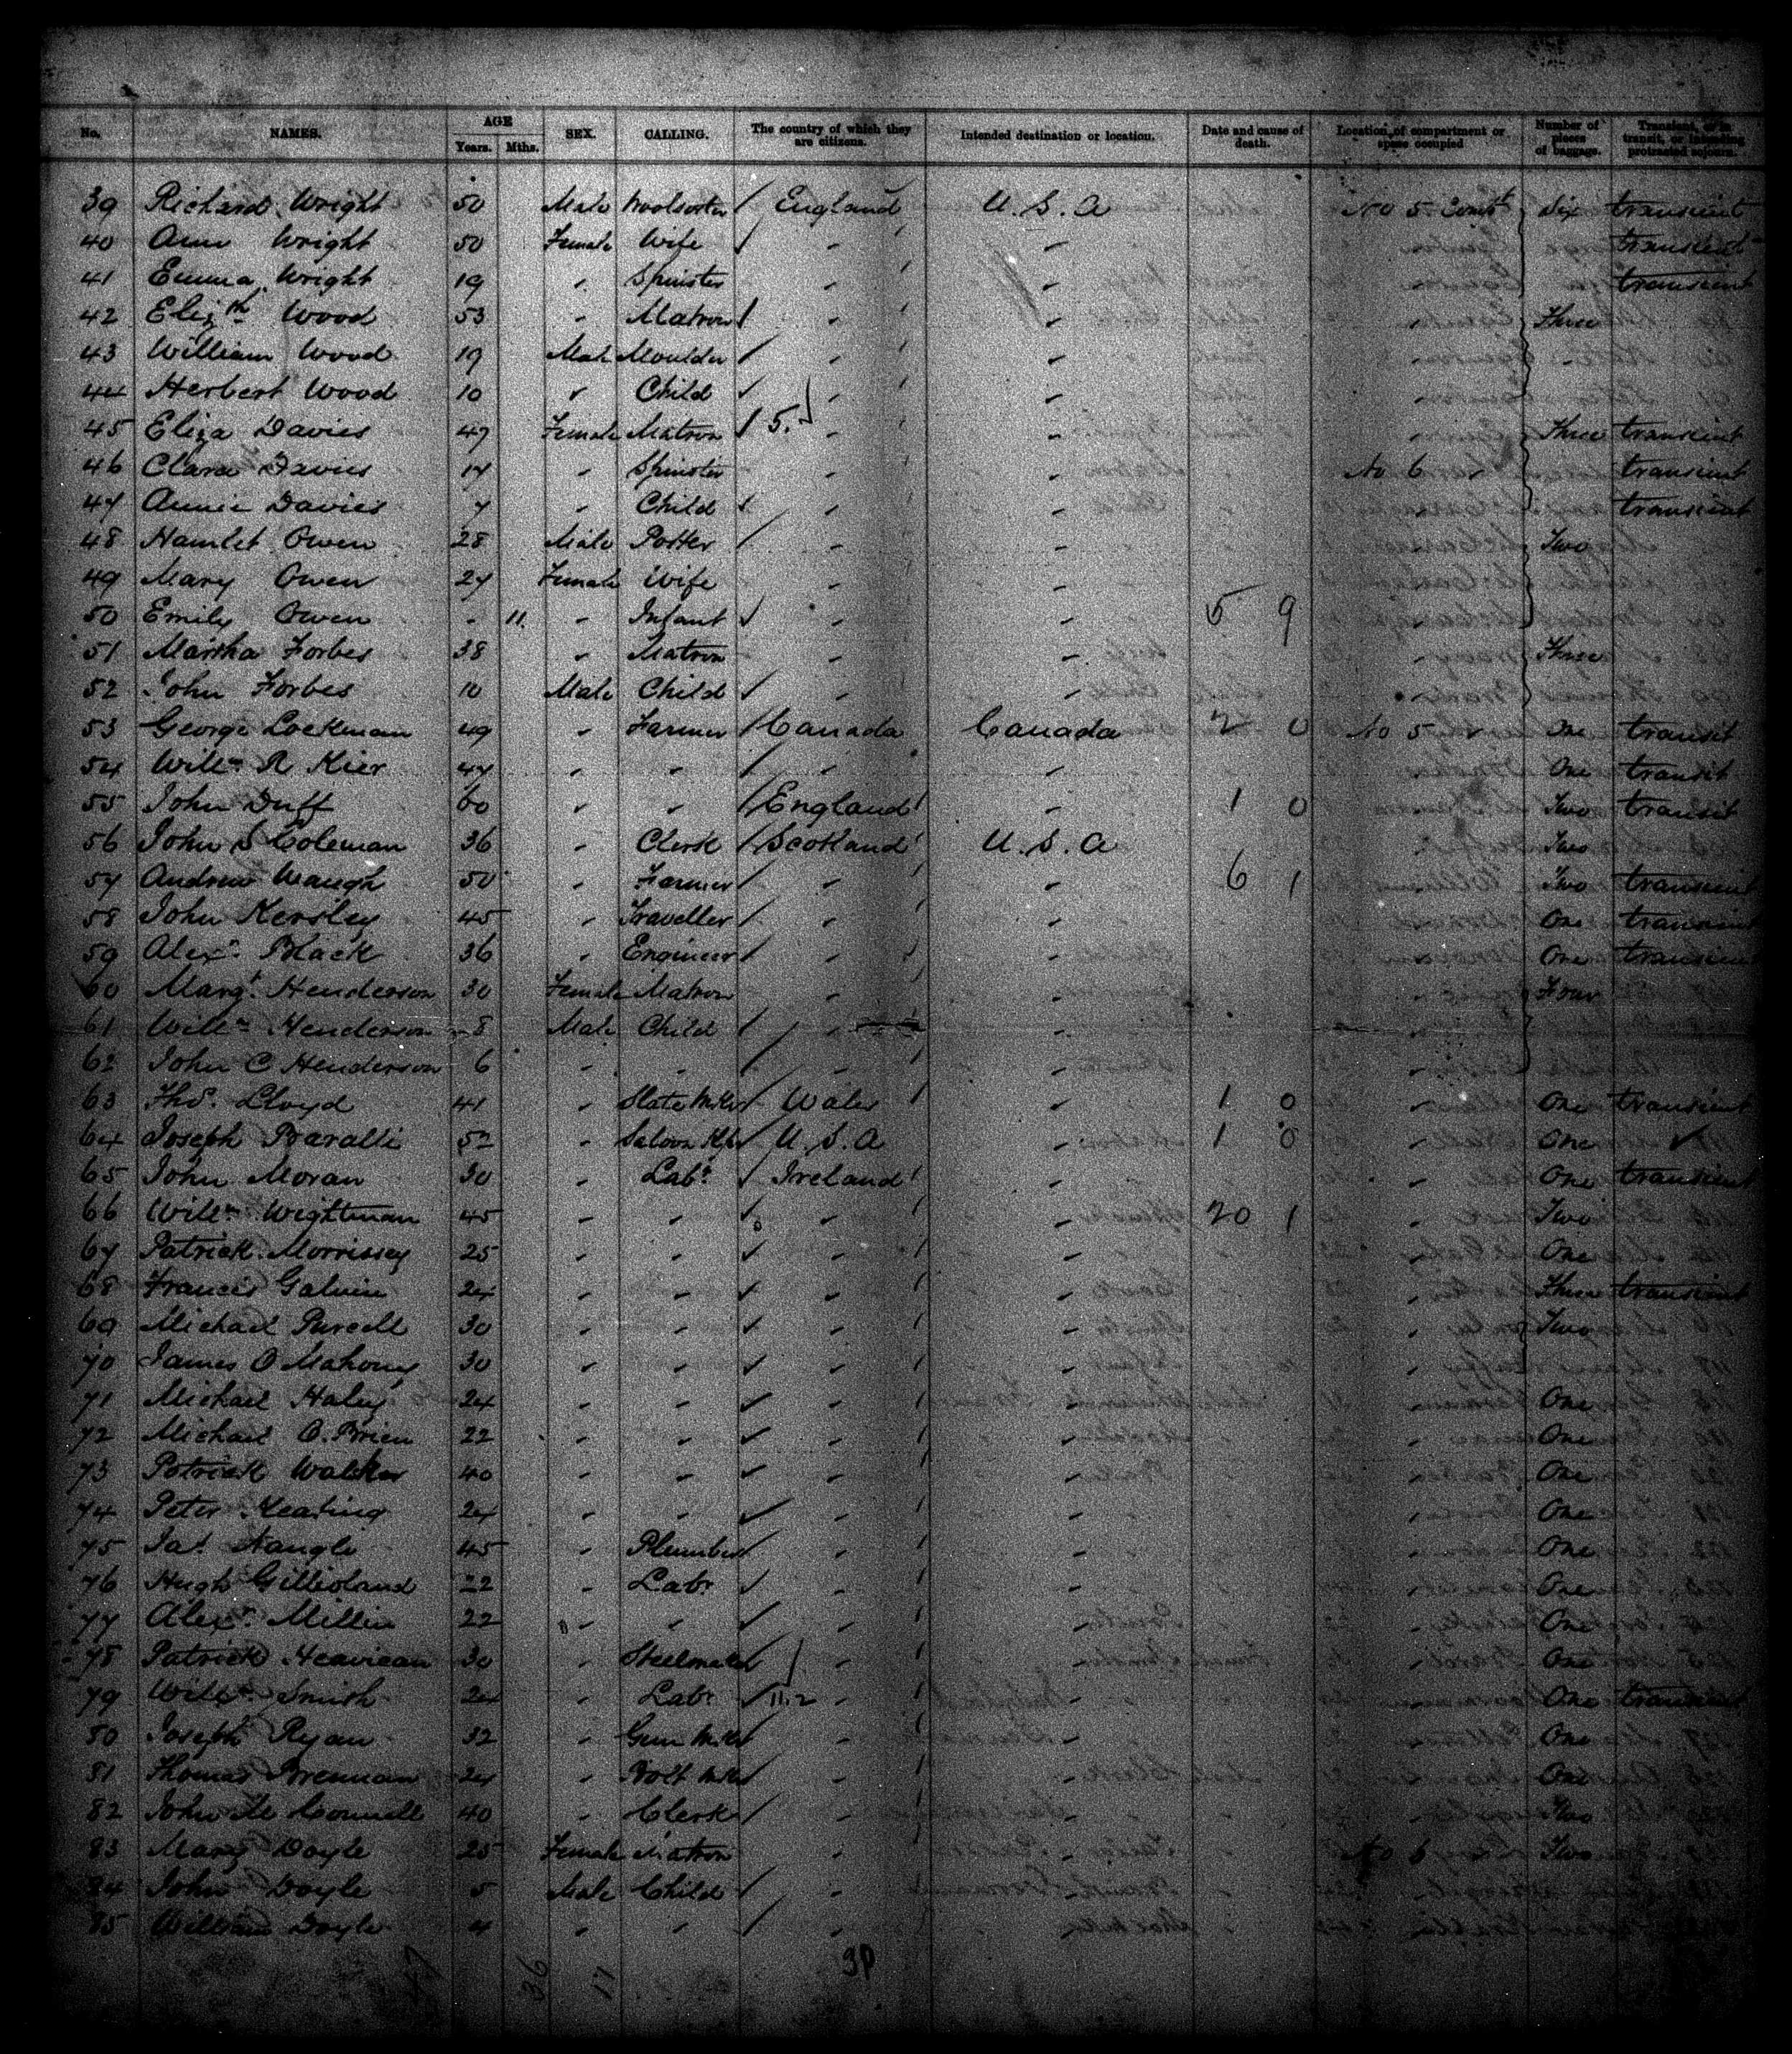 No. NAMES. AGE Years. Mths. SEX. CALLING. The country of which they are citizens. Intended destination or location. Date and cause of death. Location of compartment or space occupied Number of pieces of baggage. Transient, or in transit, or intending protracted sojourn.
39 Richard Wright 50 Male Woolsorter England U. S. A No 5 Compt Six transient
40 Ann Wright 50 Female Wife " " " transient
41 Emma Wright 19 " Spinster " " " transient
42 Elizth Wood 53 " Matron " " " Three
43 William Wood 19 Male Moulder " " "
44 Herbert Wood 10 " Child " " "
45 Eliza Davies 47 Female Matron 5. " " " Three transient
46 Clara Davies 17 " Spinster " " No 6 " transient
47 Annie Davies 7 " Child " " " transient
48 Hamlet Owen 28 Male Potter " " " Two
49 Mary Owen 27 Female Wife " " "
50 Emily Owen - 11 " Infant " " 5 9 "
51 Martha Forbes 38 " Matron " " " Three
52 John Forbes 10 Male Child " " "
53 George Lockman 49 " Farmer Canada Canada 2 0 No 5 " One transit
54 Willm R Kier 47 " " " " " One transit
55 John Duff 60 " " England " 1 0 " Two transit
56 John S Coleman 36 " Clerk Scotland U. S. A " Two
57 Andrew Waugh 50 " Farmer " " 6 1 " Two transient
58 John Kersley 45 " Traveller " " " One transient
59 Alexr Black 36 " Engineer " " " One transient
60 Margt Henderson 30 Female Matron " " " Four
61 Willm Henderson 8 Male Child " " "
62 John C Henderson 6 " " " " "
63 Thos. Lloyd 41 " Slate Mkr Wales " 1 0 " One transient
64 Joseph Baralli 52 " Saloon Kpr U. S. A " 1 0 " One
65 John Moran 30 " Labr Ireland " " One transient
66 Willm Wightman 45 " " " " 20 1 " Two
67 Patrick Morrissey 25 " " " " " One
68 Francis Galvin 24 " " " " " Three transient
69 Michael Purcell 30 " " " " " Two
70 James O Mahony 30 " " " " "
71 Michael Haley 24 " " " " " One
72 Michael O. Brien 22 " " " " " One
73 Patrick Walker 40 " " " " " One
74 Peter Keating 24 " " " " " One
75 Jas. Nangle 45 " Plumber " " " One
76 Hugh Gillioland 22 " Labr " " " One
77 Alexr Millin 22 " " " " " One
78 Patrick Heavican 30 " Steelmaker " " " One
79 Willm Smith 24 " Labr 11.2 " " " One transient
80 Joseph Ryan 32 " Gun Mkr " " " One
81 Thomas Brennan 24 " Bolt Mkr " " " One
82 John Mc Connell 40 " Clerk " " " Two
83 Mary Doyle 25 Female Matron " " No 6 " Two
84 John Doyle 5 Male Child " "
85 William Doyle 4 " " " "
36 17